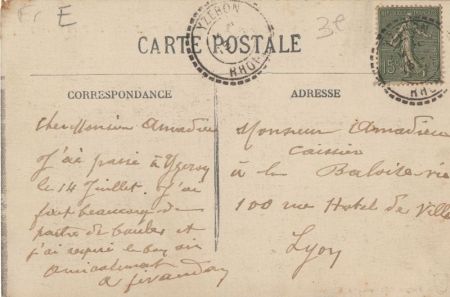 Fr E
3e
YZERON
RHONE
CARTE POSTALE
15
RH
CORRESPONDANCE
ADRESSE
Cher Monsieur Amadieu
J'ai passé à Yzeron
le 14 Juillet. J'ai
fait beaucoup de
partie de boules et
j'ai respiré le bon air
amicalement
Monsieur Amadieu
caissier
à la Baloise-vie
100 rue Hotel de Ville
Lyon